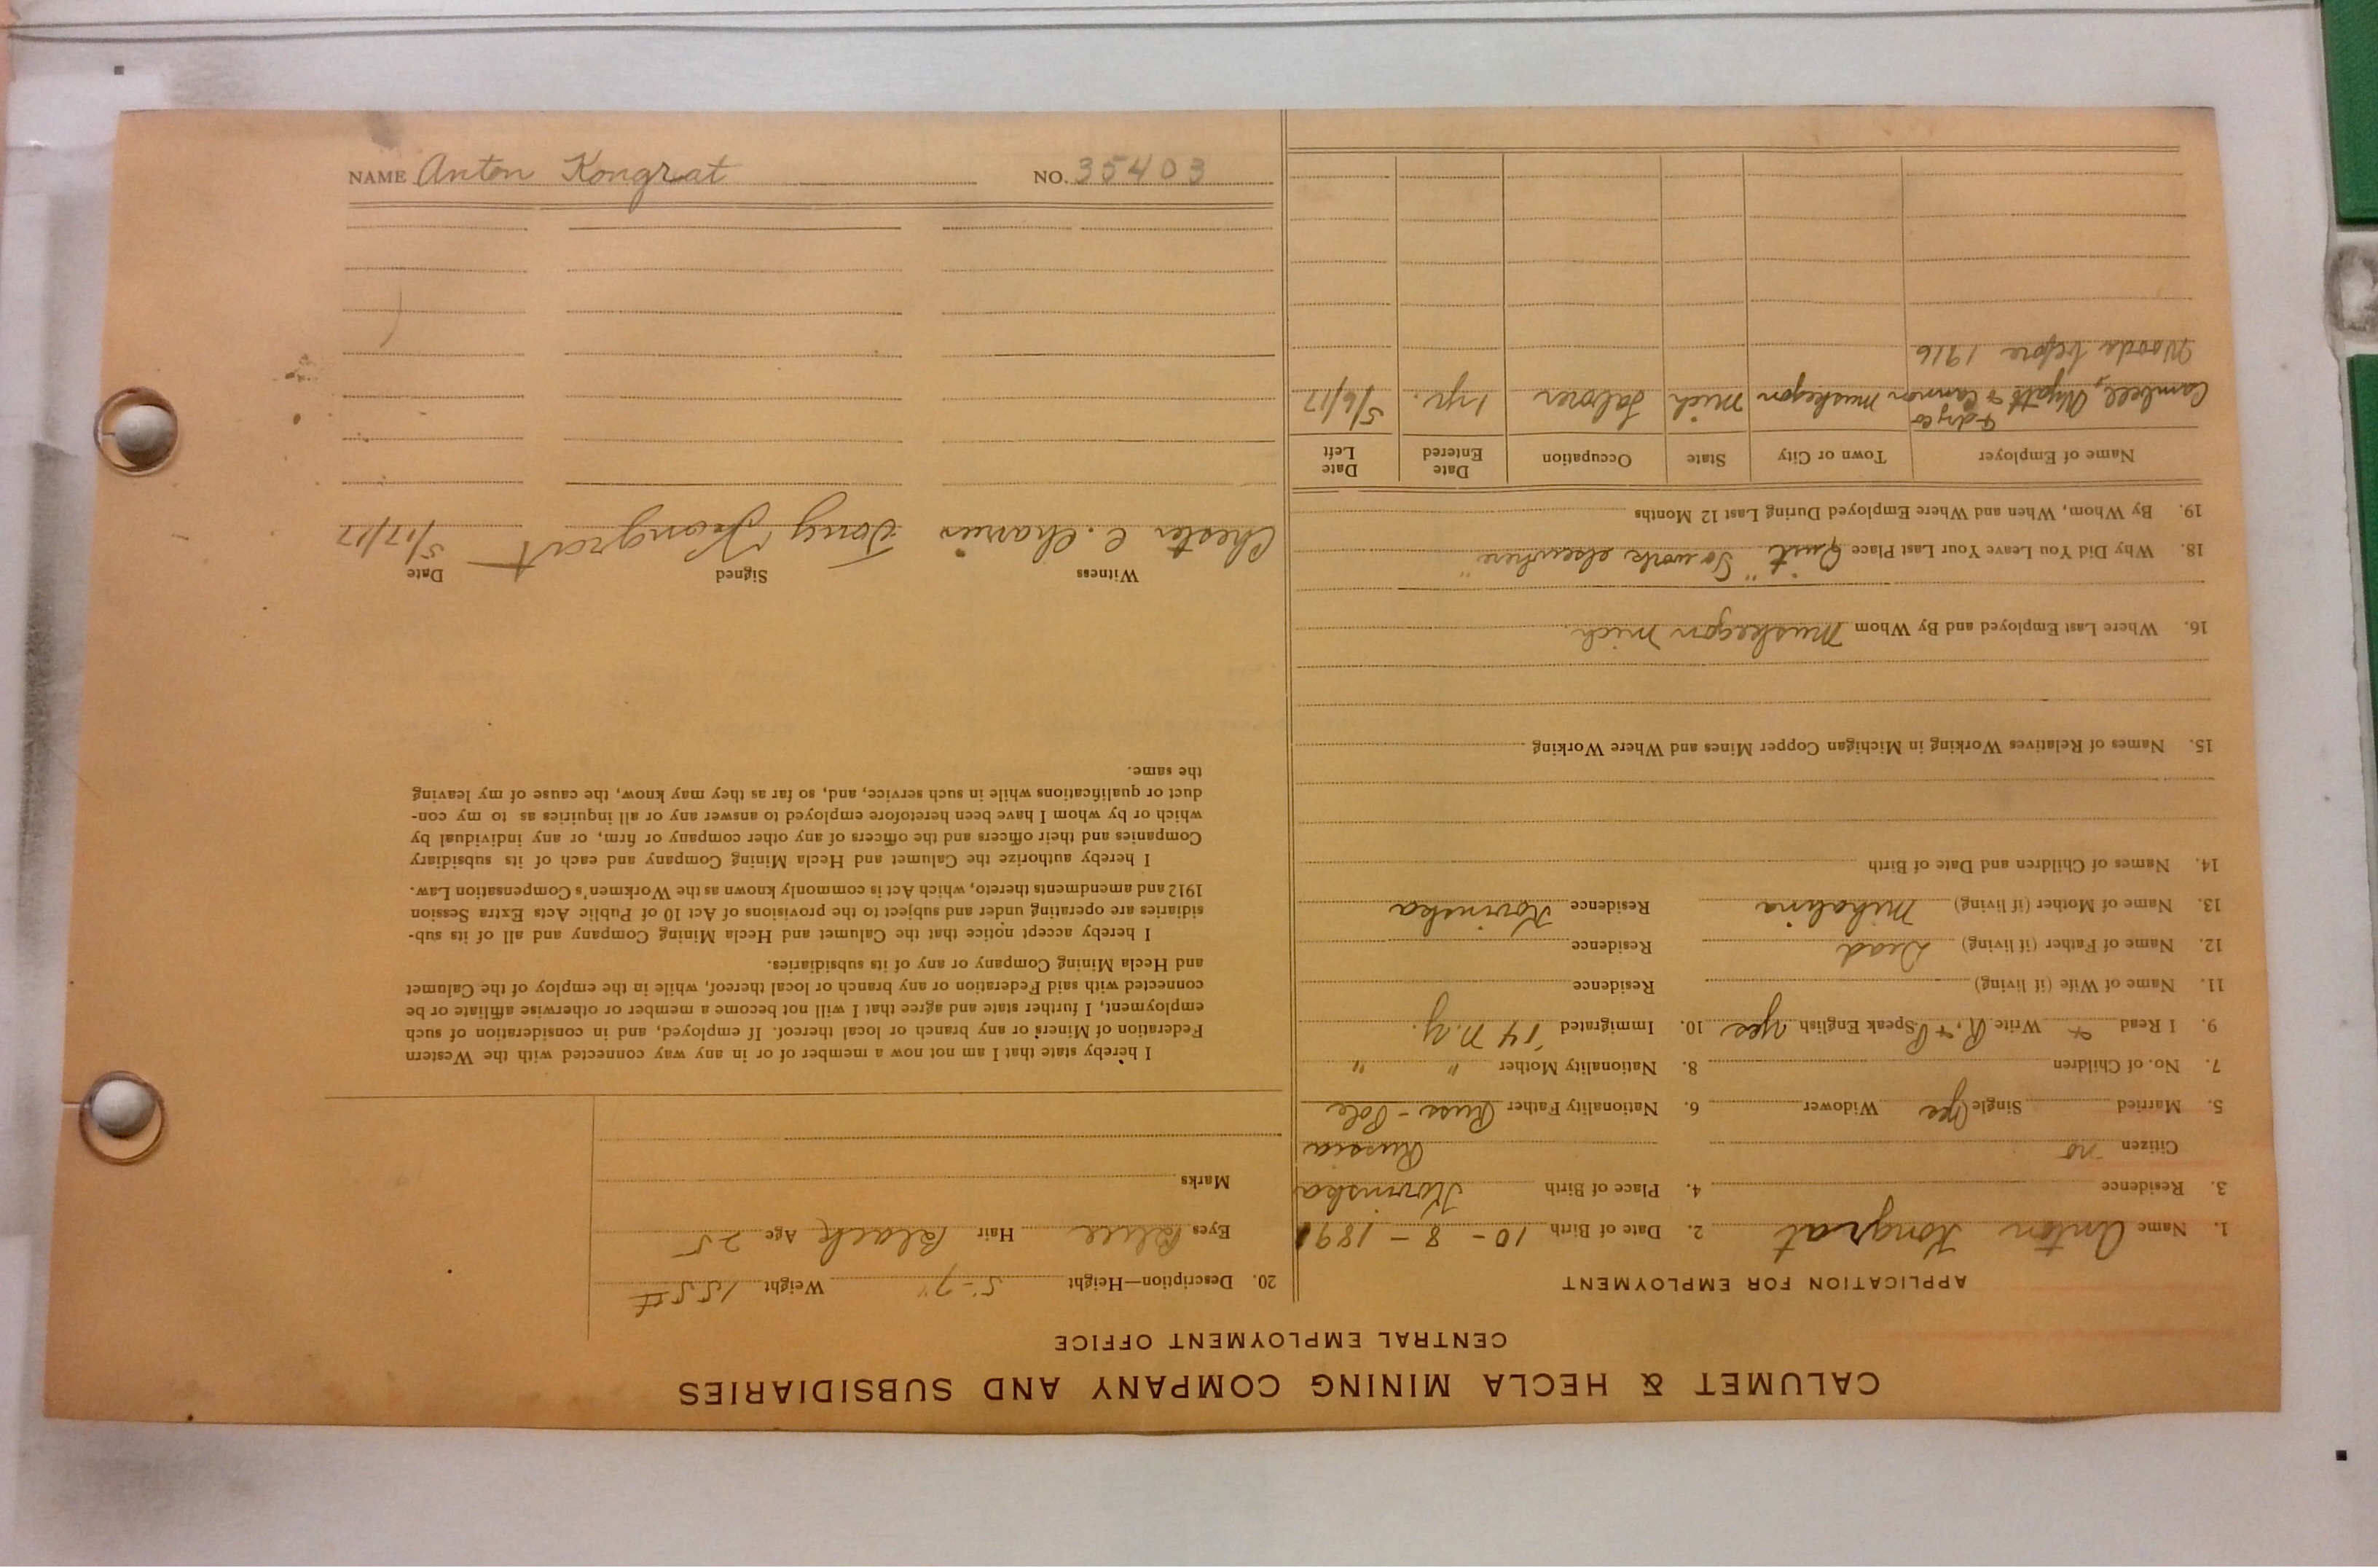 NAME Anton Kongrat NO. 35403
CALUMET & HECLA MINING COMPANY AND SUBSIDIARIES
CENTRAL EMPLOYMENT OFFICE
APPLICATION FOR EMPLOYMENT
1. Name Anton Kongrat 2. Date of Birth 10 - 8 - 1891
3. Residence 4. Place of Birth Kovinska
Citizen no Russia
5. Married Single yes Widower 6. Nationality Father Russ - Pole
7. No. of Children 8. Nationality Mother " "
9. I Read Write R. & P. Speak English yes 10. Immigrated '14 N.Y.
11. Name of Wife (if living) Residence
12. Name of Father (if living) Dead Residence
13. Name of Mother (if living) Mihalina Residence Kovinska
14. Names of Children and Date of Birth
15. Names of Relatives Working in Michigan Copper Mines and Where Working
16. Where Last Employed and By Whom Muskegon Mich.
18. Why Did You Leave Your Last Place Quit "To work elsewhere"
19. By Whom, When and Where Employed During Last 12 Months
Name of Employer Town or City State Occupation Date Entered Date Left
Cambell, Wyatt & Cannon Fdry Co Muskegon Mich Laborer 1 yr. 5/6/17
Woods before 1916
20. Description—Height 5-7" Weight 155#
Eyes Blue Hair Black Age 25
Marks
I hereby state that I am not now a member of or in any way connected with the Western
Federation of Miners or any branch or local thereof. If employed, and in consideration of such
employment, I further state and agree that I will not become a member or otherwise affiliate or be
connected with said Federation or any branch or local thereof, while in the employ of the Calumet
and Hecla Mining Company or any of its subsidiaries.
I hereby accept notice that the Calumet and Hecla Mining Company and all of its sub-
sidiaries are operating under and subject to the provisions of Act 10 of Public Acts Extra Session
1912 and amendments thereto, which Act is commonly known as the Workmen's Compensation Law.
I hereby authorize the Calumet and Hecla Mining Company and each of its subsidiary
Companies and their officers and the officers of any other company or firm, or any individual by
which or by whom I have been heretofore employed to answer any or all inquiries as to my con-
duct or qualifications while in such service, and, so far as they may know, the cause of my leaving
the same.
Witness Signed Date
Chester C. Charris Tony Kongrat 5/17/17